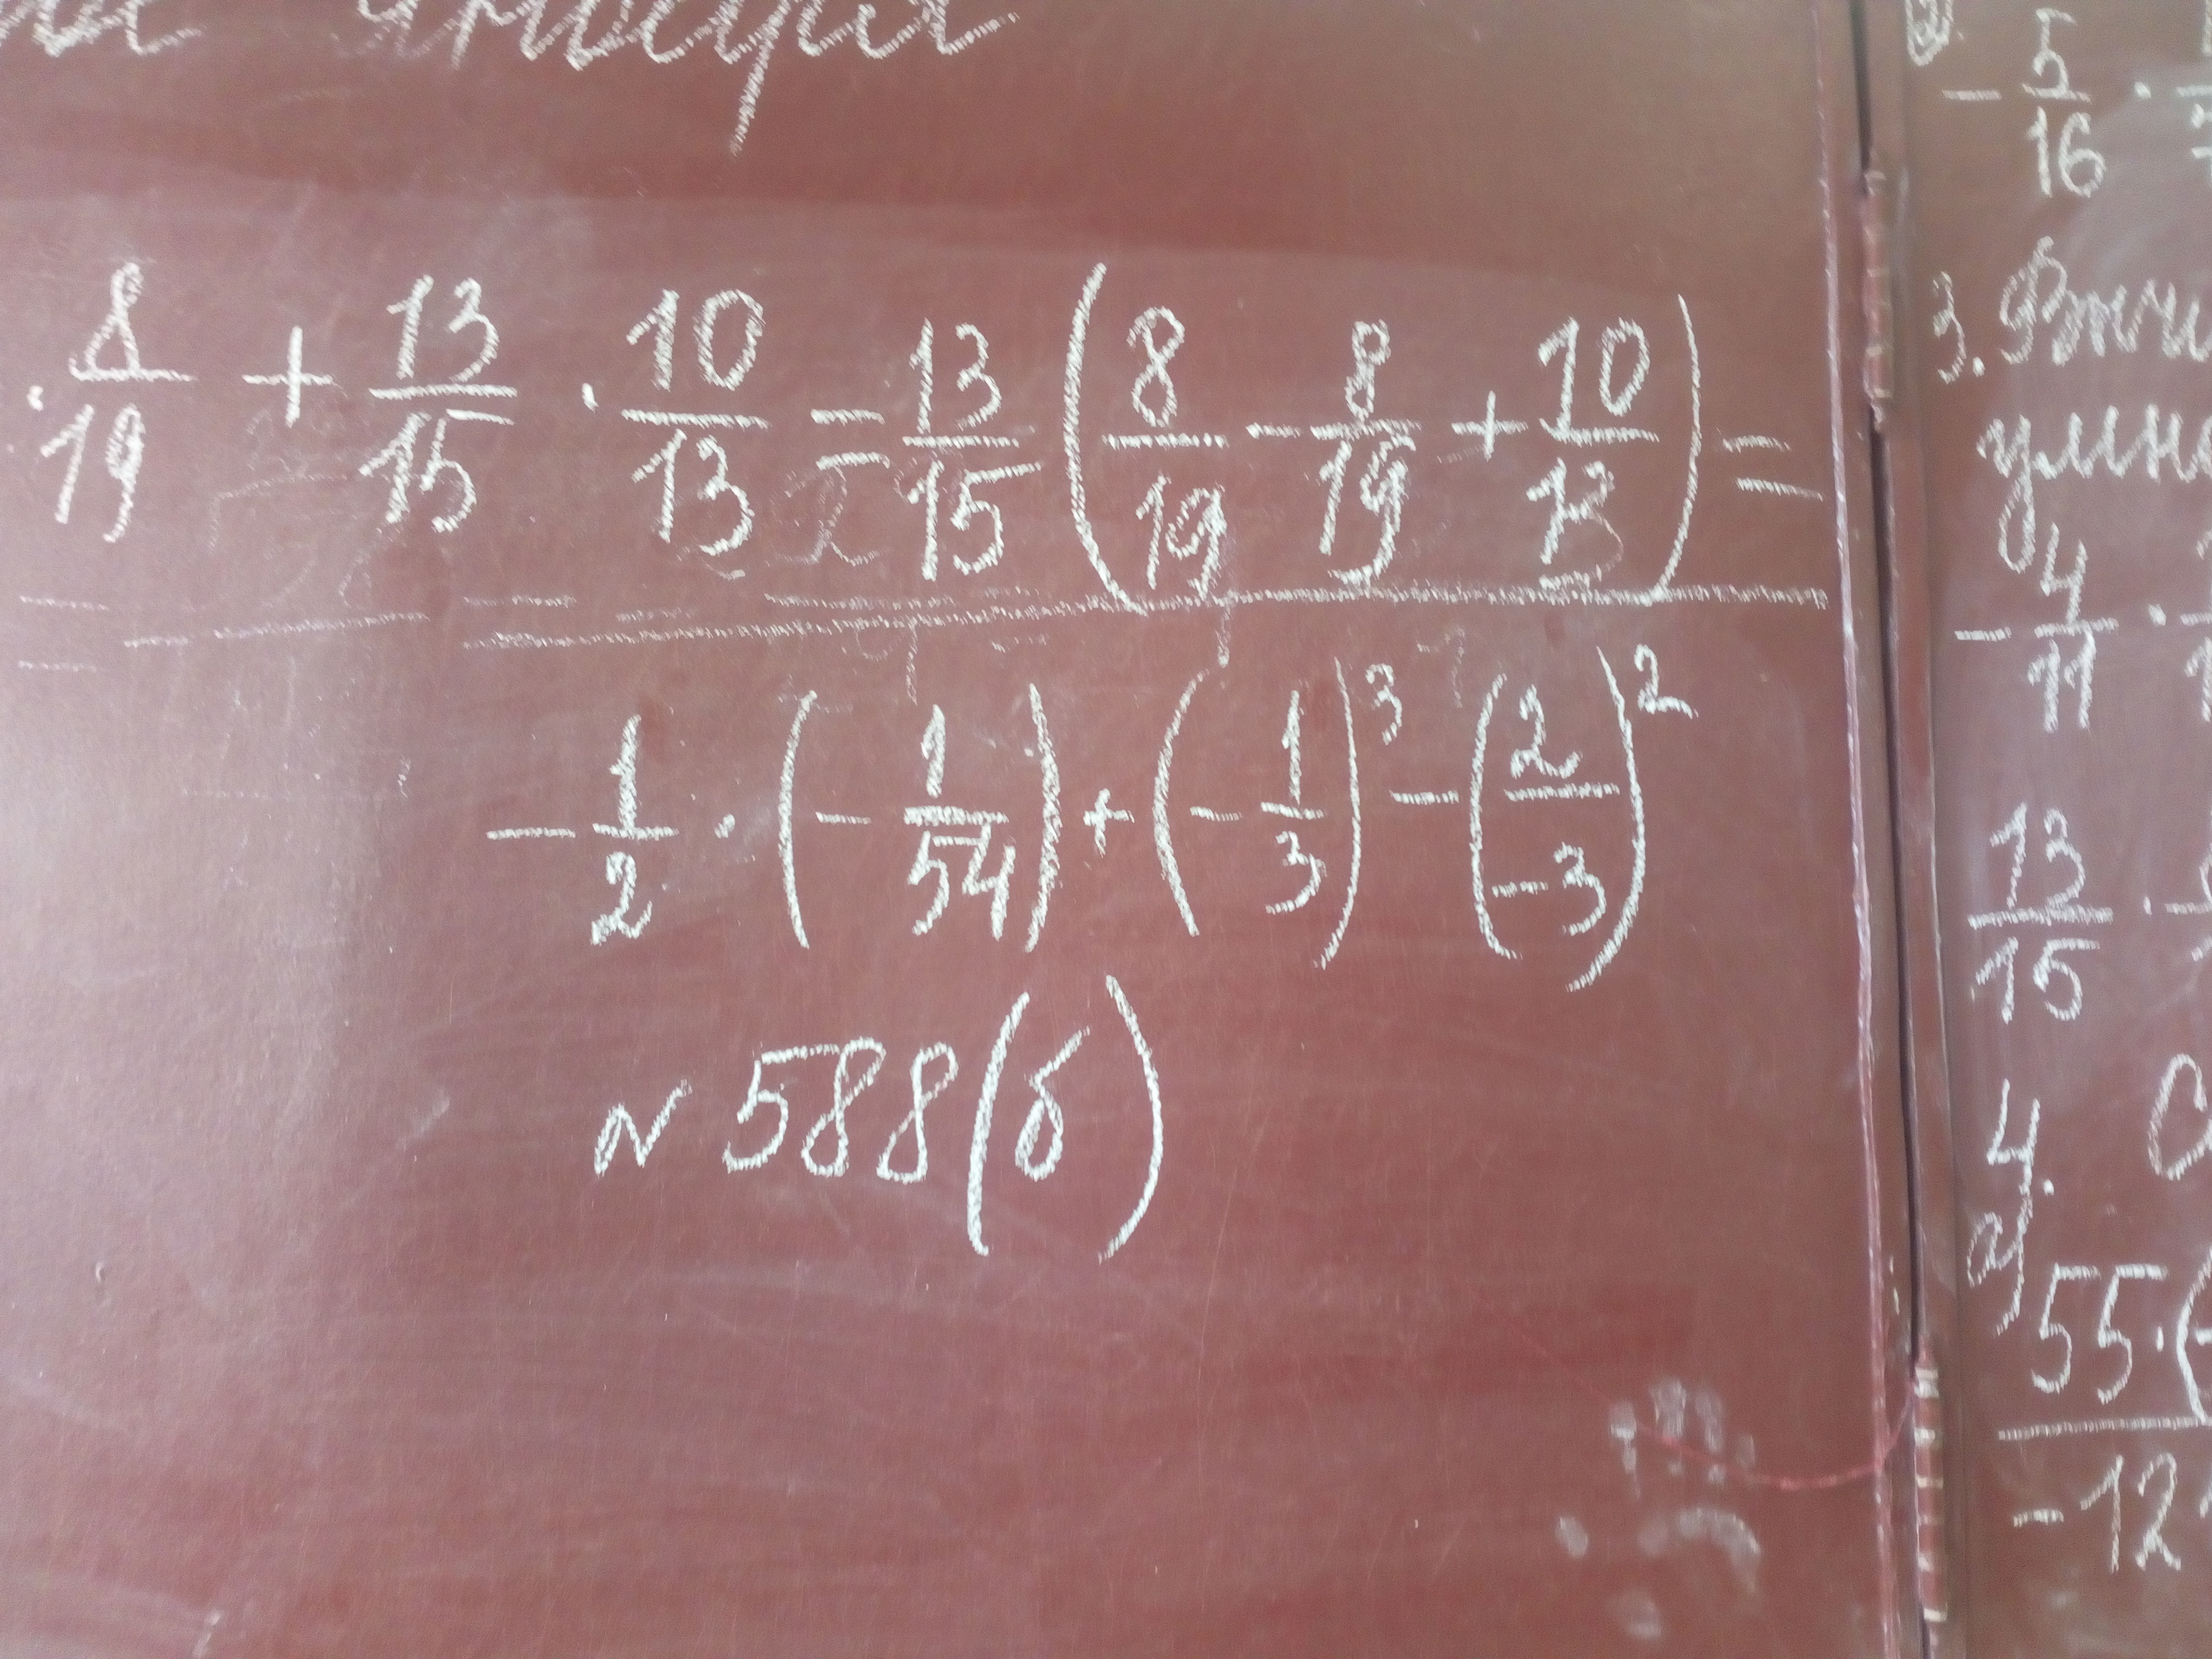 января
· 8/19 + 13/15 · 10/13 = 13/15 (8/19 - 8/19 + 10/13) =
- 1/2 · (- 1/54) + (- 1/3)³ - (2/-3)²
№ 588(б)
- 5/16 ·
3.
умно
- 4/11 ·
13/15 ·
4.
а)
55 · (
-12